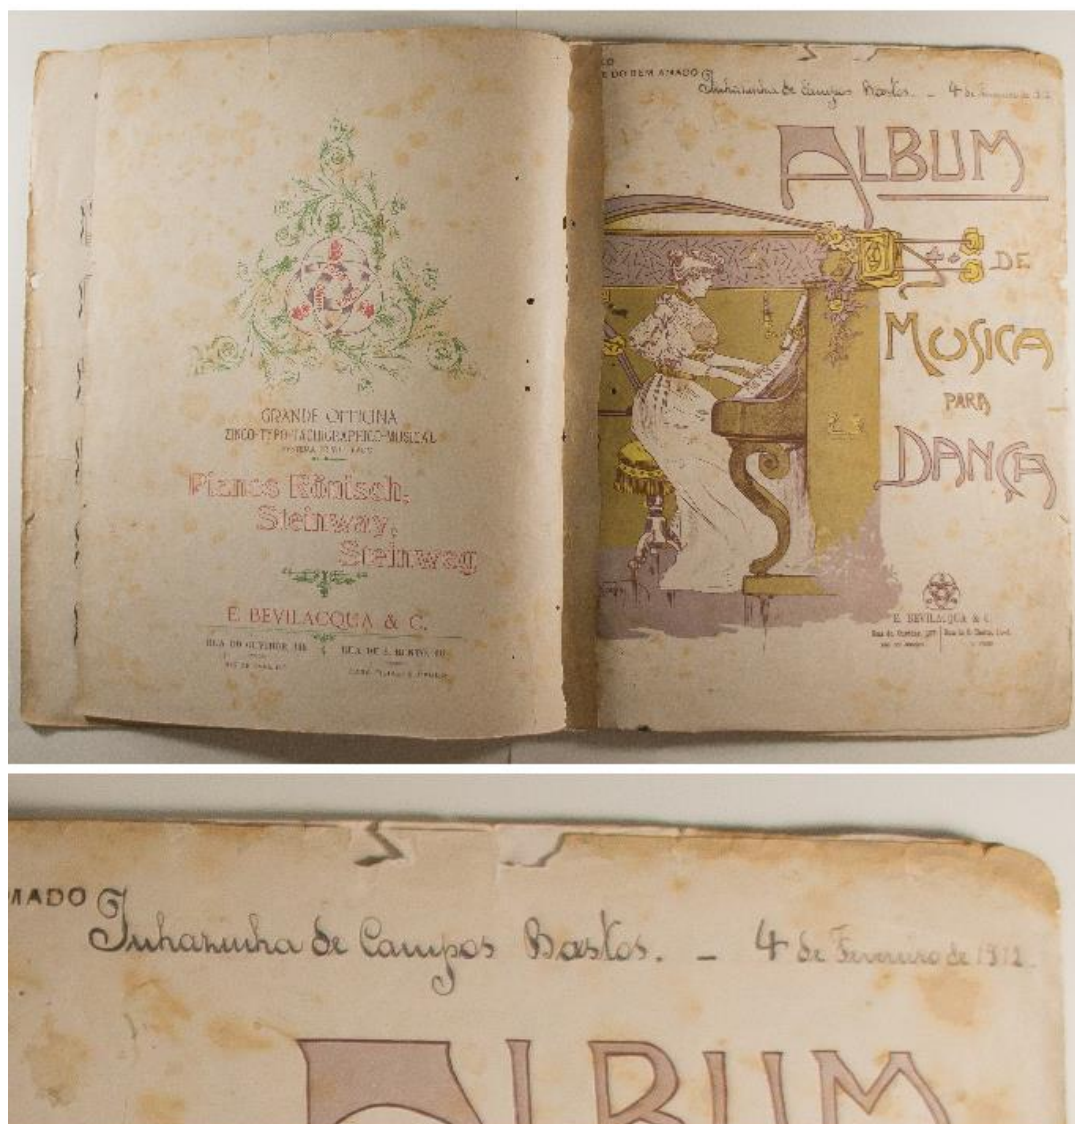 GRANDE OFFICINA
ZINCO-TYPO-TACHIGRAPHICO-MUSICAL
Pianos Rönisch,
Steinway,
Steinweg
E. BEVILACQUA & C.
RUA DO OUVIDOR,
RUA DE S. BENTO,
E DO BEM AMADO
Inhazinha de Campos Bastos. - 4 de Fevereiro de 1912
ALBUM
DE
MUSICA
PARA
DANÇA
E. BEVILACQUA & C.
Rua do Ouvidor,
MADO
Inhazinha de Campos Bastos. - 4 de Fevereiro de 1912
ALBUM